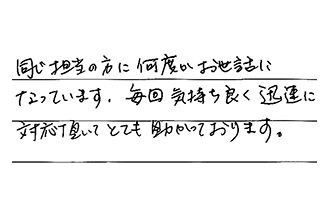 同じ担当の方に何度かお世話に
なっています。毎回気持ち良く迅速に
対応頂いてとても助かっております。